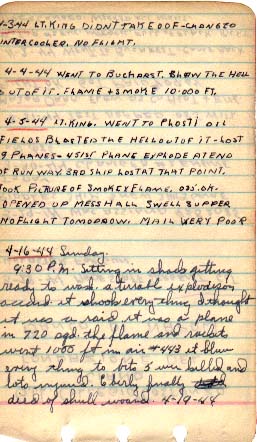 4-3-44 LT. KING DIDNT TAKE OOF - CHANGED
INTERCOOLER. NO FLIGHT.
4-4-44 WENT TO BUCHARST. BLOW THE HELL
OUT OF IT. FLAME + SMOKE 10-000 FT.
4-5-44 LT. KING. WENT TO PLOSTI OIL
FIELDS BLASTED THE HELL OUT OF IT - LOST
9 PLANES - 451ST PLANE EXPLODE AT END
OF RUN WAY. 3RD SHIP LOST AT THAT POINT.
TOOK PICTURE OF SMOKE + FLAME. OBS. OK.
OPENED UP MESS HALL SWELL SUPPER
NO FLIGHT TOMORROW. MAIL VERY POOR
4-16-44 Sunday
9:30 P.M. Sitting in shack getting
ready to wash, a terrable explodsion
accord it shook every thing I thought
it was a raid it was a plane
in 720 sqd. the flame and rockets
went 1000 ft in air #443 it blew
every thing to bits 5 were killed and
lots injured. Eberly finally
died of skull wound. 4-19-44